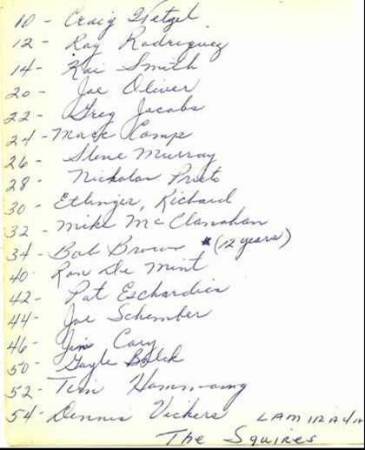 10 - Craig Wetzel
12 - Ray Rodriquez
14 - Kai Smith
20 - Joe Oliver
22 - Greg Jacobs
24 - Mark Camp
26 - Steve Murray
28 - Nicholas
30 - Etlinger, Richard
32 - Mike McClanahan
34 - Bob Brown * (12 years)
40 - Ron De Mint
42 - Pat
44 - Joe Schember
46 - Jim Cary
50 - Gayle
52 - Tim
54 - Dennis Vickers
The Squires